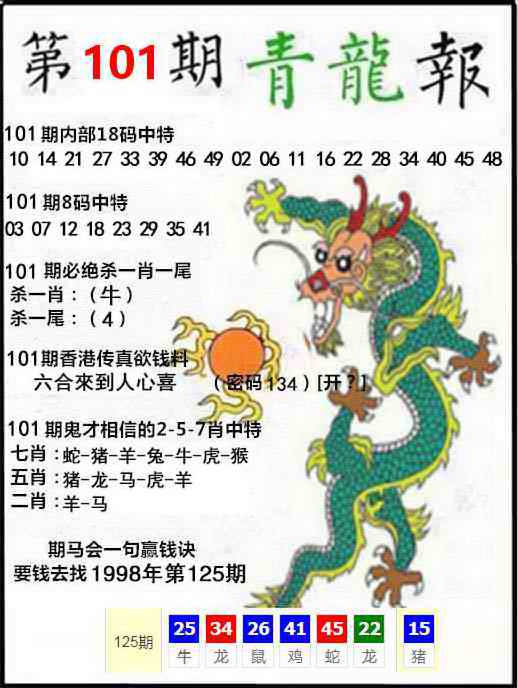 第101期青龍報
101期内部18码中特
10 14 21 27 33 39 46 49 02 06 11 16 22 28 34 40 45 48
101期8码中特
03 07 12 18 23 29 35 41
101期必绝杀一肖一尾
杀一肖：（牛）
杀一尾：（4）
101期香港传真欲钱料
六合來到人心喜 （密码134）[开？]
101期鬼才相信的2-5-7肖中特
七肖：蛇-猪-羊-兔-牛-虎-猴
五肖：猪-龙-马-虎-羊
二肖：羊-马
期马会一句赢钱诀
要钱去找1998年第125期
125期 25 34 26 41 45 22 15
牛 龙 鼠 鸡 蛇 龙 猪